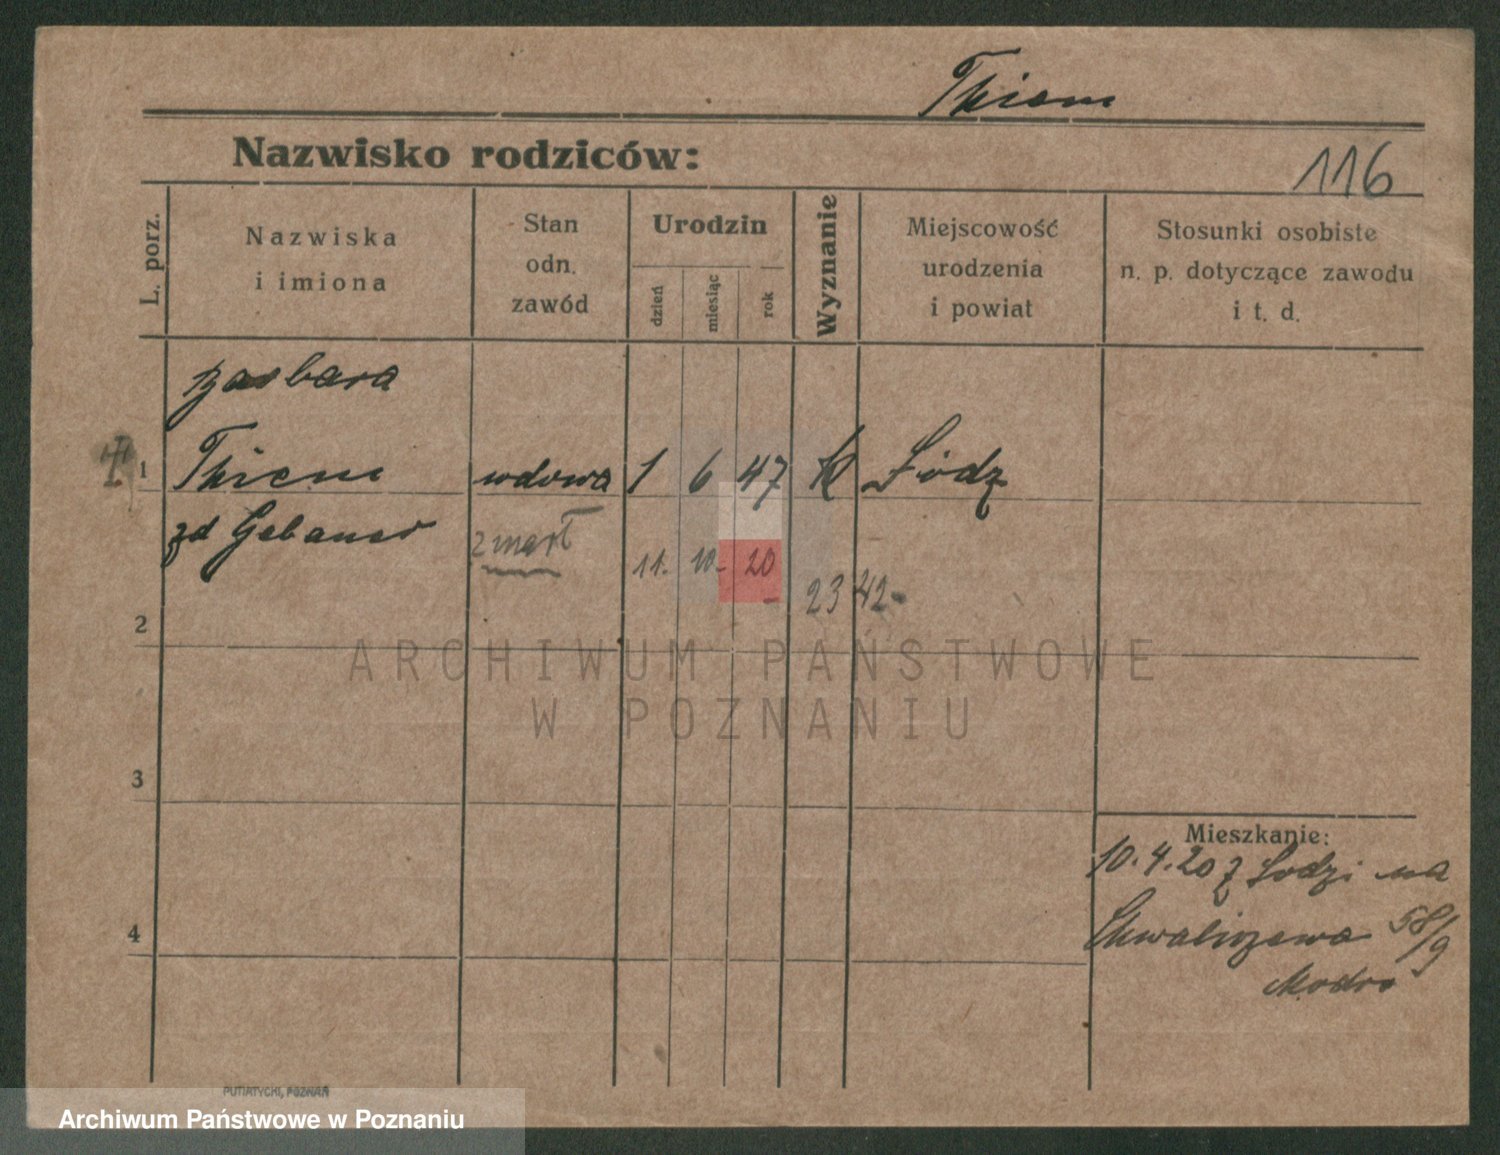 Thiem
Nazwisko rodziców:
116
L. porz.
Nazwiska
i imiona
Stan
odn.
zawód
Urodzin
dzień
miesiąc
rok
Wyznanie
Miejscowość
urodzenia
i powiat
Stosunki osobiste
n. p. dotyczące zawodu
i t. d.
Barbara
1 Thiem wdowa 1 6 47 K Łódz
zd Gebauer zmarł 11. 10. 20
23 42
2
ARCHIWUM PAŃSTWOWE
W POZNANIU
3
Mieszkanie:
10.4.20 z Łodzi na
4
Chwaliszewa 58/9
Modro
PUTIATYCKI, POZNAŃ
Archiwum Państwowe w Poznaniu